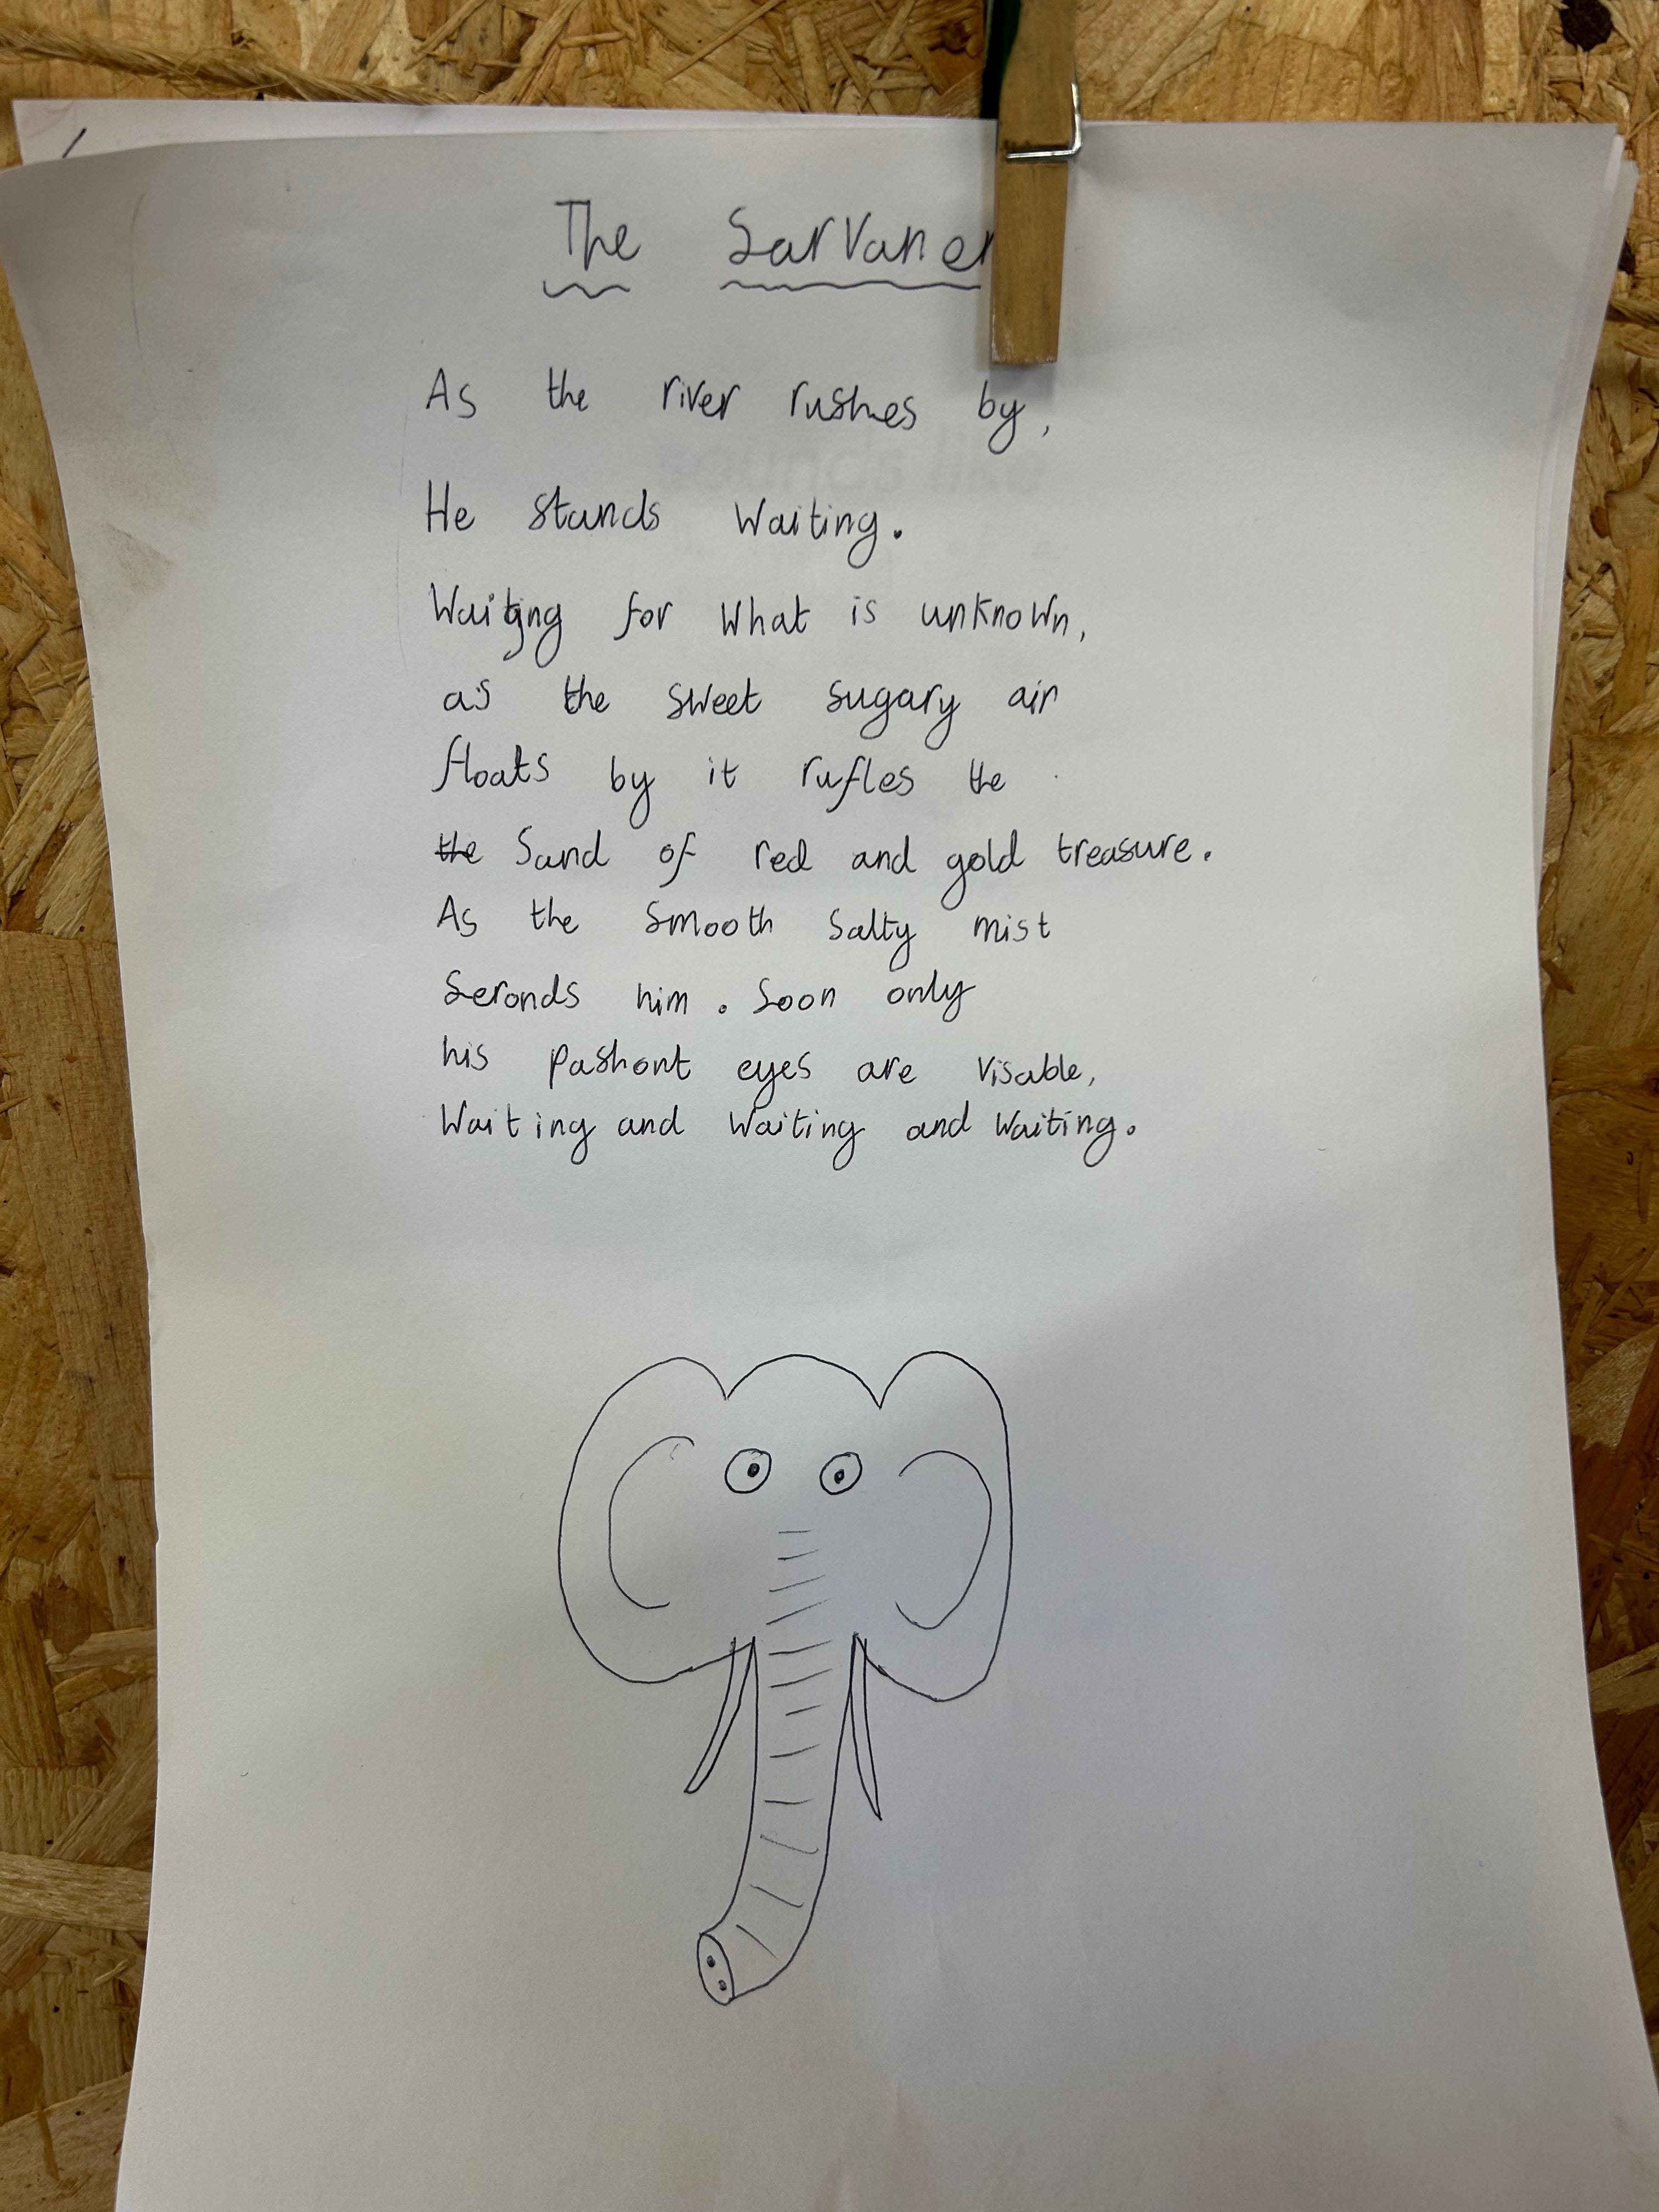 The Sarvaner
As the river rushes by,
He stands Waiting.
Waiting for What is unknown,
as the sweet sugary air
floats by it rufles the
the Sand of red and gold treasure.
As the smooth salty mist
Seronds him. Soon only
his pashont eyes are visable,
Waiting and Waiting and Waiting.